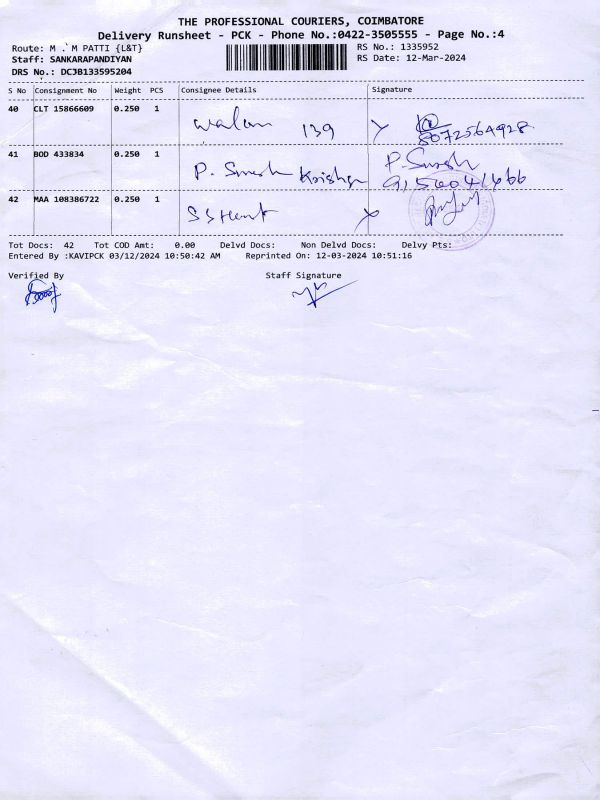 THE PROFESSIONAL COURIERS, COIMBATORE
Delivery Runsheet - PCK - Phone No.:0422-3505555 - Page No.:4
Route: M .`M PATTI {L&T}
RS No.: 1335952
Staff: SANKARAPANDIYAN
RS Date: 12-Mar-2024
DRS No.: DCJB133595204
S No Consignment No Weight PCS Consignee Details Signature
40 CLT 15866609 0.250 1 139 8072564928
41 BOD 433834 0.250 1 P. Suresh Krishna P. Suresh
42 MAA 108386722 0.250 1
Tot Docs: 42 Tot COD Amt: 0.00 Delvd Docs: Non Delvd Docs: Delvy Pts:
Entered By :KAVIPCK 03/12/2024 10:50:42 AM Reprinted On: 12-03-2024 10:51:16
Verified By Staff Signature